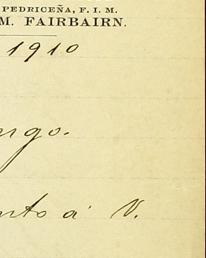 PEDRICEÑA, F. I. M.
M. FAIRBAIRN.
1910
ngo.
nto á V.